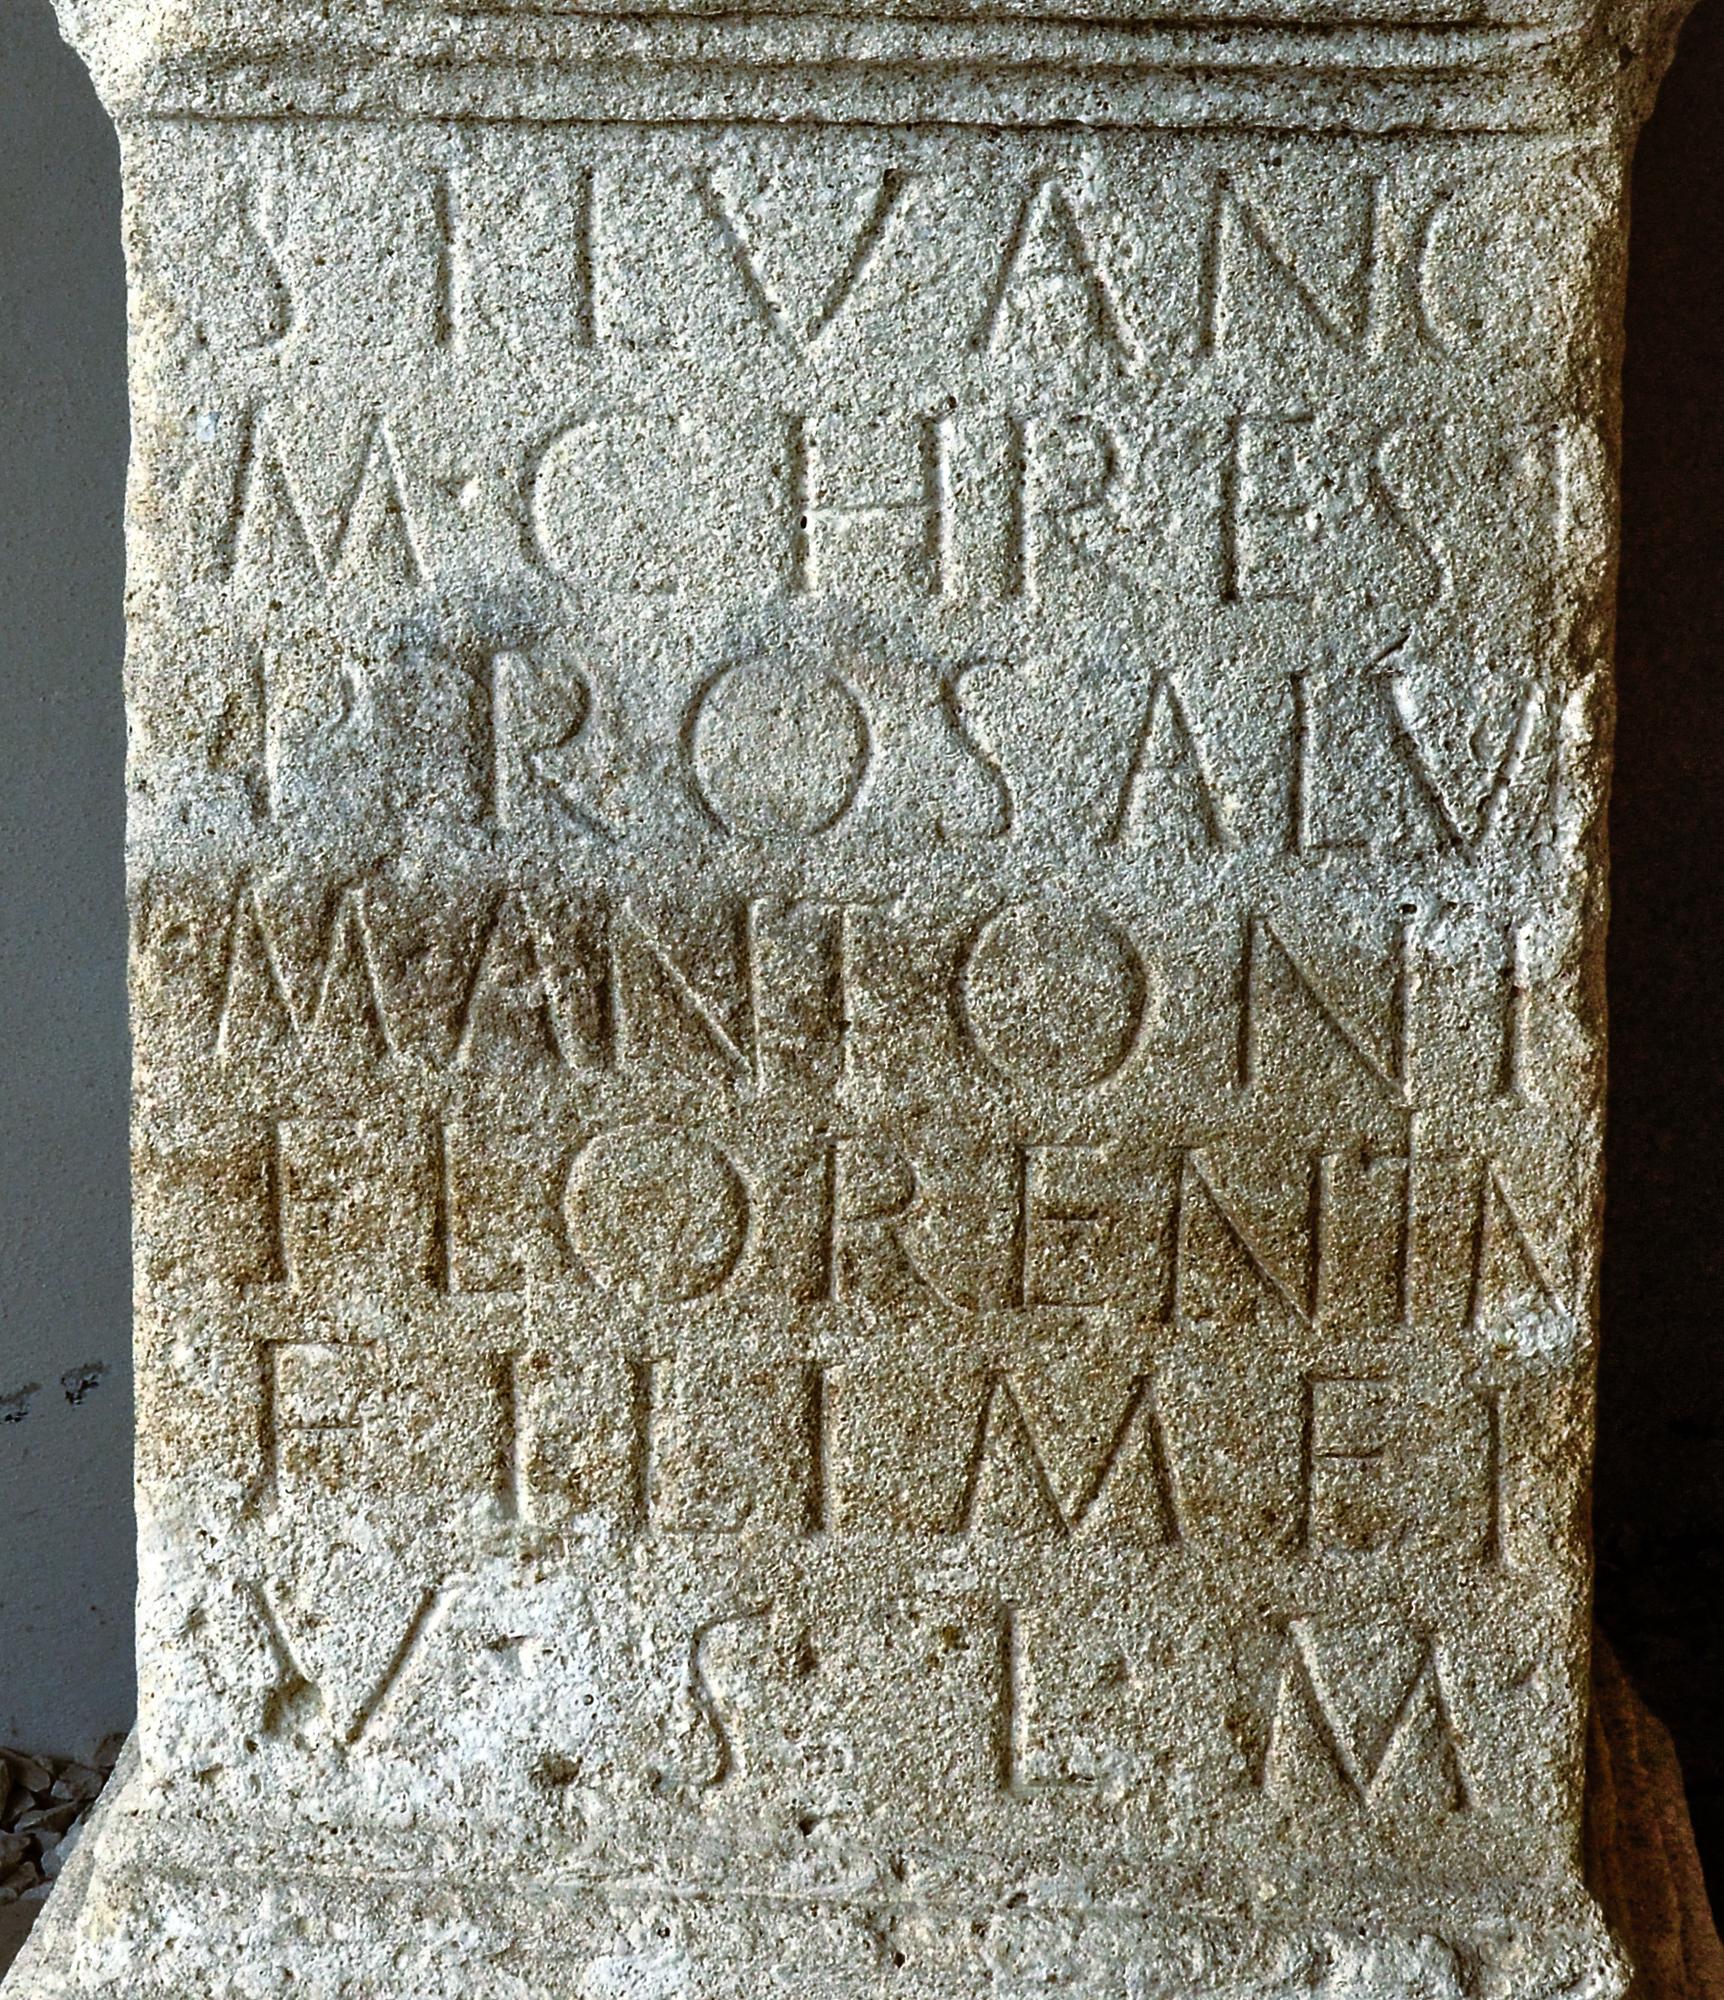 SILVANO
M CHREST
PRO SALV
M ANTONI
FLORENTIN
FILI MEI
V S L M